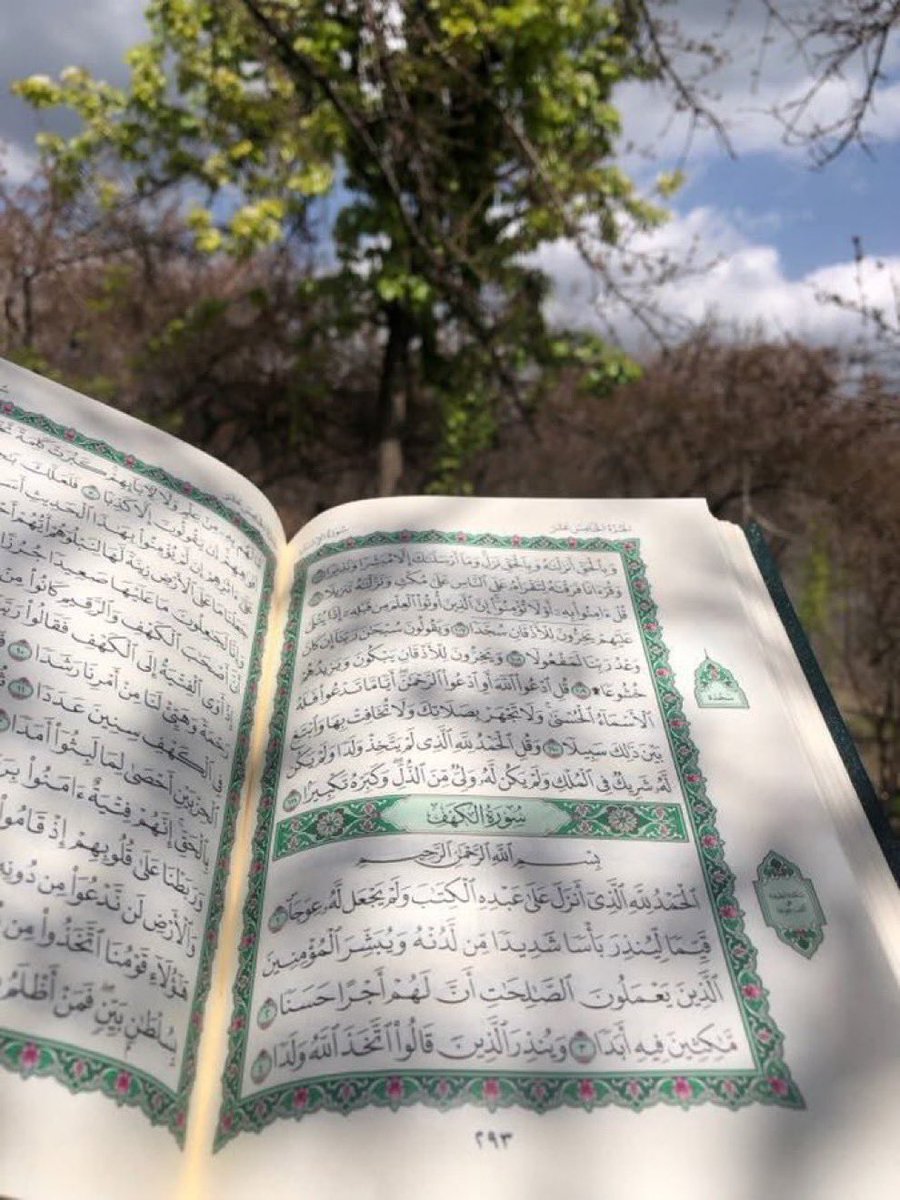 الجزء الخامس عشر
سورة الإسراء
وَبِٱلْحَقِّ أَنزَلْنَٰهُ وَبِٱلْحَقِّ نَزَلَ وَمَآ أَرْسَلْنَٰكَ إِلَّا مُبَشِّرًا وَنَذِيرًا ١٠٥
وَقُرْءَانًا فَرَقْنَٰهُ لِتَقْرَأَهُۥ عَلَى ٱلنَّاسِ عَلَىٰ مُكْثٍ وَنَزَّلْنَٰهُ تَنزِيلًا ١٠٦
قُلْ ءَامِنُوا۟ بِهِۦٓ أَوْ لَا تُؤْمِنُوٓا۟ إِنَّ ٱلَّذِينَ أُوتُوا۟ ٱلْعِلْمَ مِن قَبْلِهِۦٓ إِذَا يُتْلَىٰ
عَلَيْهِمْ يَخِرُّونَ لِلْأَذْقَانِ سُجَّدًا ١٠٧ وَيَقُولُونَ سُبْحَٰنَ رَبِّنَآ إِن كَانَ
وَعْدُ رَبِّنَا لَمَفْعُولًا ١٠٨ وَيَخِرُّونَ لِلْأَذْقَانِ يَبْكُونَ وَيَزِيدُهُمْ
خُشُوعًا ۩ ١٠٩ قُلِ ٱدْعُوا۟ ٱللَّهَ أَوِ ٱدْعُوا۟ ٱلرَّحْمَٰنَ أَيًّا مَّا تَدْعُوا۟ فَلَهُ
ٱلْأَسْمَآءُ ٱلْحُسْنَىٰ وَلَا تَجْهَرْ بِصَلَاتِكَ وَلَا تُخَافِتْ بِهَا وَٱبْتَغِ
بَيْنَ ذَٰلِكَ سَبِيلًا ١١٠ وَقُلِ ٱلْحَمْدُ لِلَّهِ ٱلَّذِى لَمْ يَتَّخِذْ وَلَدًا وَلَمْ يَكُن
لَّهُۥ شَرِيكٌ فِى ٱلْمُلْكِ وَلَمْ يَكُن لَّهُۥ وَلِىٌّ مِّنَ ٱلذُّلِّ وَكَبِّرْهُ تَكْبِيرًۢا ١١١
سُورَةُ الكَهْفِ
بِسْمِ ٱللَّهِ ٱلرَّحْمَٰنِ ٱلرَّحِيمِ
ٱلْحَمْدُ لِلَّهِ ٱلَّذِىٓ أَنزَلَ عَلَىٰ عَبْدِهِ ٱلْكِتَٰبَ وَلَمْ يَجْعَل لَّهُۥ عِوَجَا ١
قَيِّمًا لِّيُنذِرَ بَأْسًا شَدِيدًا مِّن لَّدُنْهُ وَيُبَشِّرَ ٱلْمُؤْمِنِينَ
ٱلَّذِينَ يَعْمَلُونَ ٱلصَّٰلِحَٰتِ أَنَّ لَهُمْ أَجْرًا حَسَنًا ٢
مَّٰكِثِينَ فِيهِ أَبَدًا ٣ وَيُنذِرَ ٱلَّذِينَ قَالُوا۟ ٱتَّخَذَ ٱللَّهُ وَلَدًا ٤
٢٩٣
لَهُم بِهِۦ مِنْ عِلْمٍ وَلَا لِءَابَآئِهِمْ كَبُرَتْ كَلِمَةً
إِن يَقُولُونَ إِلَّا كَذِبًا ٥ فَلَعَلَّكَ
عَلَىٰٓ ءَاثَٰرِهِمْ إِن لَّمْ يُؤْمِنُوا۟ بِهَٰذَا ٱلْحَدِيثِ
جَعَلْنَا مَا عَلَى ٱلْأَرْضِ زِينَةً لَّهَا لِنَبْلُوَهُمْ أَيُّهُمْ
وَإِنَّا لَجَٰعِلُونَ مَا عَلَيْهَا صَعِيدًا جُرُزًا
أَنَّ أَصْحَٰبَ ٱلْكَهْفِ وَٱلرَّقِيمِ كَانُوا۟ مِنْ
إِذْ أَوَى ٱلْفِتْيَةُ إِلَى ٱلْكَهْفِ فَقَالُوا۟
رَحْمَةً وَهَيِّئْ لَنَا مِنْ أَمْرِنَا رَشَدًا ١٠
فِى ٱلْكَهْفِ سِنِينَ عَدَدًا ١١
ٱلْحِزْبَيْنِ أَحْصَىٰ لِمَا لَبِثُوٓا۟ أَمَدًا
بِٱلْحَقِّ إِنَّهُمْ فِتْيَةٌ ءَامَنُوا۟
وَرَبَطْنَا عَلَىٰ قُلُوبِهِمْ إِذْ قَامُوا۟
وَٱلْأَرْضِ لَن نَّدْعُوَا۟ مِن دُونِهِۦٓ
هَٰٓؤُلَآءِ قَوْمُنَا ٱتَّخَذُوا۟ مِن
بِسُلْطَٰنٍۭ بَيِّنٍ فَمَنْ أَظْلَمُ